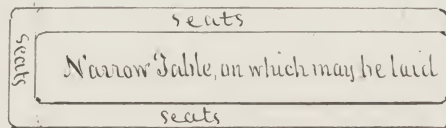 seats
seats
Narrow Table, on which may be laid
seats